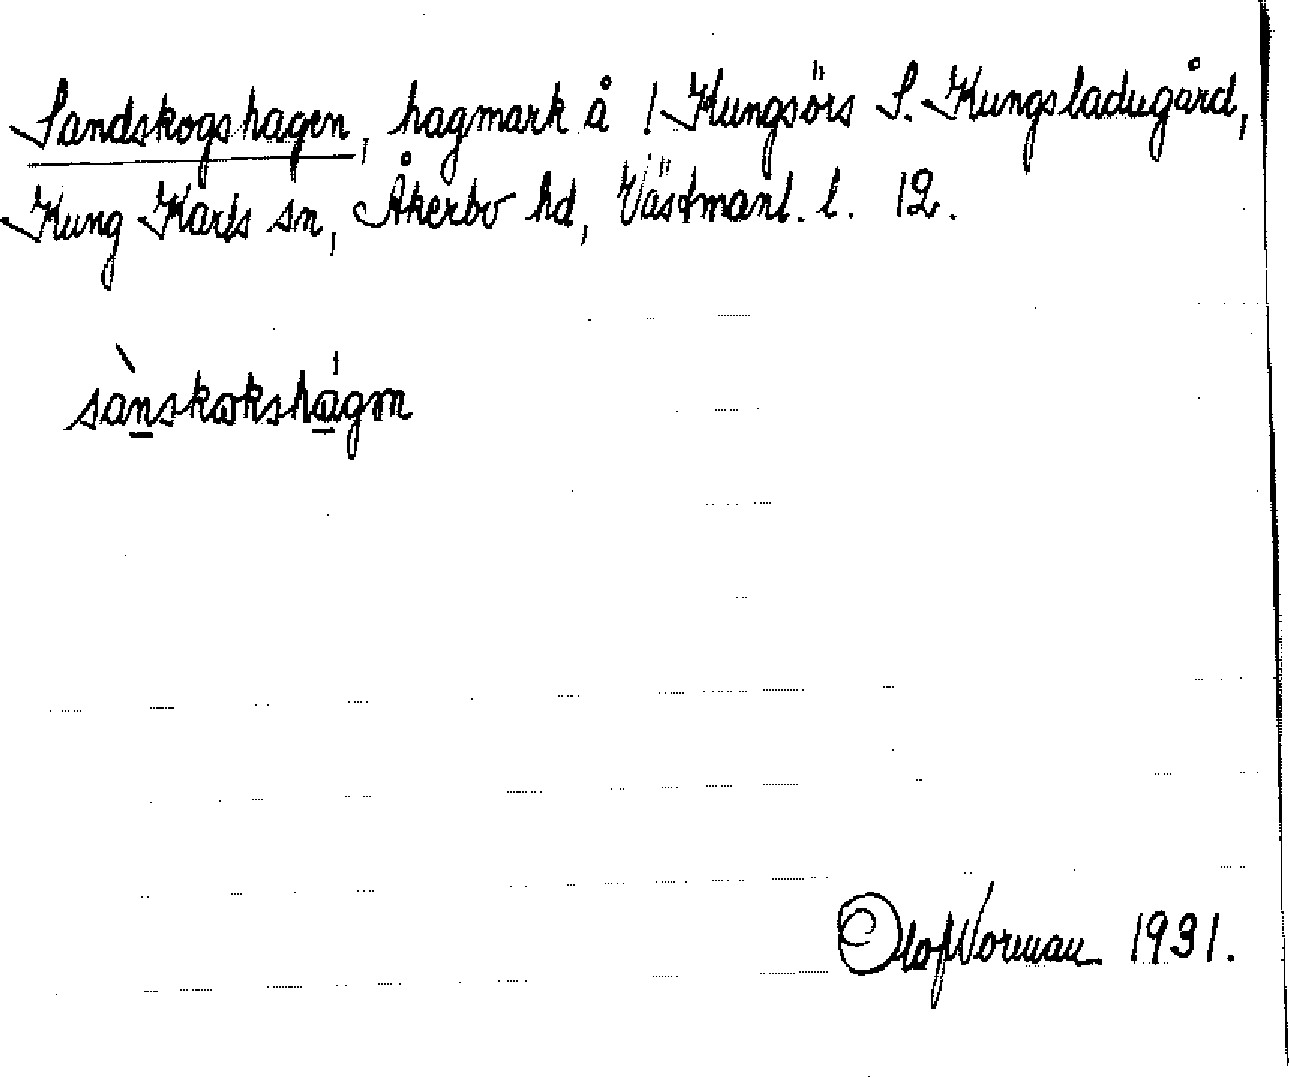 Sandskogshagen, hagmark å 1 Kungsörs S. Kungsladugård,
Kung Karls sn, Åkerbo hd, Västmanl. l. 12.
sànskokshágɷn
Olof Norman 1931.